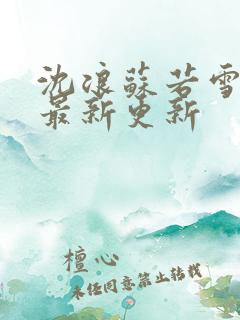 沈浪蘇若雪
最新更新
檀心
未经同意禁止转载